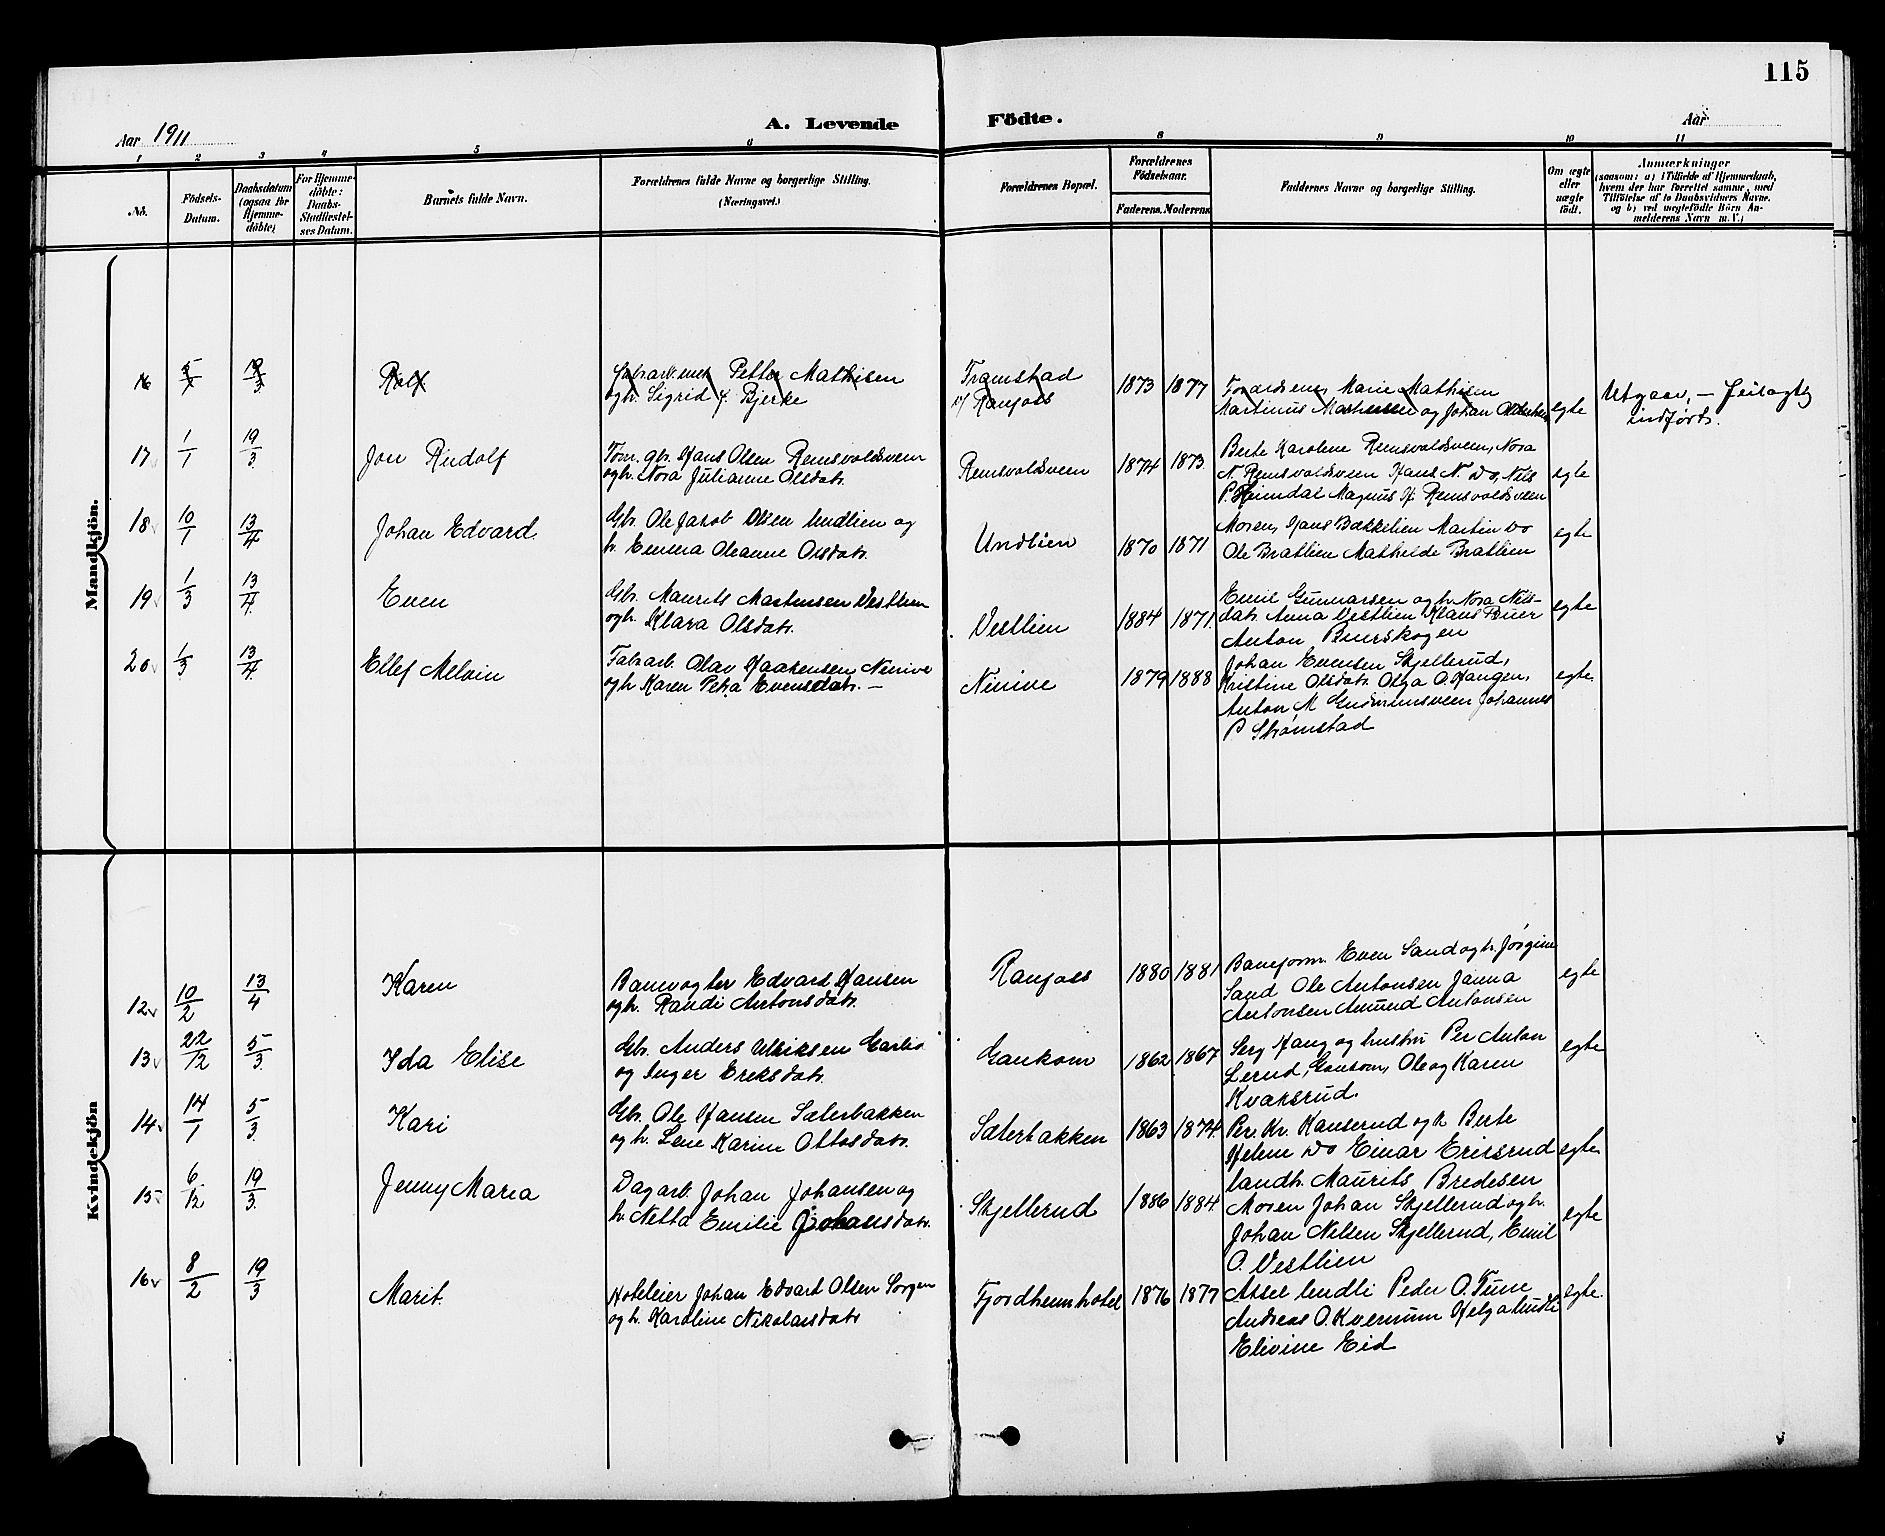 115
Aar 1911
A. Levende Födte.
Aar
1 2 3 4 5 6 8 9 10 11
No.
Födsels-
Datum.
Daabsdatum
(ogsaa for
Hjemme-
döbte)
For Hjemme-
döbte:
Daabs-
Stadfæstel-
ses Datum.
Barnets fulde Navn.
Forældrenes fulde Navne og borgerlige Stilling.
(Næringsvei.)
Forældrenes Bopæl.
Forældrenes
Födselsaar.
Faderens. Moderens
Faddernes Navne og borgerlige Stilling.
Om ægte
eller
uægte
födt.
Anmærkninger
(saasom: a) i Tilfælde af Hjemmedaab,
hvem der har forrettet samme, med
Tilföielse af to Daabsvidners Navne,
og b) ved uægtefödte Börn An-
melderens Navn m. V.)
Mandkjön.
16 19/3 Rolf
Petter Mathisen
og h. Sigrid f. Bjerke
Framstad
v/ Raufoss
1873 1877
Marie Mathisen
Martinus og Johan
egte
Utgaar, – feilagtig
indført.
17 1/1 19/3 Jon Rudolf
Tøm. gbr. Hans Olsen Remsvoldsveen
og h. Nora Julianne Olsdatr.
Remsvoldsveen
1874 1873
Berte Karoline Remsvoldsveen, Nora
N. Remsvoldsveen Hans N. Do, Nils
P. Heimdal Magnus H. Remsvoldsveen
egte
18 10/1 13/4 Johan Edvard
Gbr. Ole Jakob Olsen Undlien og
h. Emma Oleanne Olsdatr.
Undlien
1870 1871
Moren, Hans Bakkelien Martin Do
Ole Bratlien Mathilde Bratlien
egte
19 1/3 13/4 Even
Gbr. Maurits Martinsen Vestlien
og h. Klara Olsdatr.
Vestlien
1884 1871
Emil Gunnarsen og h. Nora Nils-
datr. Anna Vestlien Klaus
Anton
egte
20 1/3 13/4 Ellef Melvin
Fabrarb. Olav Haakensen Ninive
og h Karen Petra Evensdatr. –
Ninive
1879 1888
Johan Evensen Skjellerud,
Kristine Olsdatr. Olga O. Haugen,
Anton M. Johannes
P. Strømstad
egte.
Kvindekjön
12 10/2 13/4 Karen
Banevogter Edvard Hansen
og h. Randi Antonsdatr.
Raufoss
1880 1881
Baneform. Even Sand og h. Jørgine
Sand Ole Antonsen Janna
Antonsen Amund Antonsen
egte
13 22/12 5/3 Ida Elise
Gbr. Anders Ulriksen
og Inger Eriksdatr.
Gaukom
1862 1867
Serg Haug og hustru Per Anton
Lerud, Gaukom, Ole og Karen
Kvaksrud.
egte
14 14/1 5/3 Kari
Gbr. Ole Hansen Sæterbakken
og h. Lene Karine Ottosdatr.
Sæterbakken
1863 1874
Per. Kr. og h Berte
Helene Do Einar
landh. Maurits Bredesen
egte
15 6/12 19/3 Jenny Maria
Dagarb. Johan Johansen og
h. Netta Emilie Johansdatr.
Skjellerud
1886 1884
Moren Johan Skjellerud og h.
Johan Nilsen Skjellerud, Emil
O. Vestlien
egte
16 8/2 19/3 Marit
Hoteleier Johan Edvart Olsen
og h. Karoline Nikolaisdatr
Fjordheim hotel
1876 1877
Undli Peder O. Tune
Andreas O. Kvernum Helga Undli
Elivine Eid
egte.